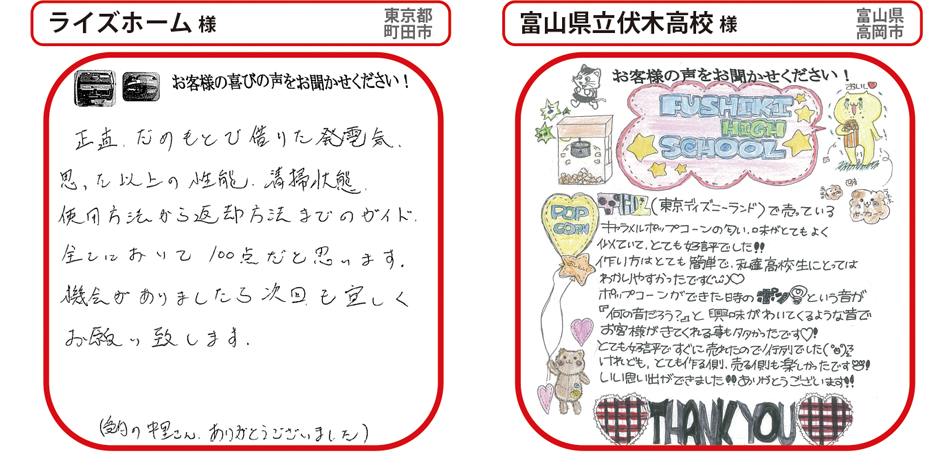 ライズホーム 様
東京都
町田市
お客様の喜びの声をお聞かせください！
正直、だめもとで借りた発電気、
思った以上の性能、清掃状態、
使用方法から返却方法までのガイド、
全てにおいて100点だと思います。
機会がありましたら次回も宜しく
お願い致します。
(受付の中里さん、ありがとうございました)
富山県立伏木高校 様
富山県
高岡市
お客様の声をお聞かせください！
FUSHIKI
HIGH
SCHOOL
おいしい
POP
CORN
(東京ディズニーランド)で売っている
キャラメルポップコーンの匂い、味がとてもよく
似ていて、とても好評でした!!
作り方はとても簡単で、私達高校生にとっては
わかりやすかったです(^^)♡
ポップコーンができた時のポンッという音が
『何の音だろう?』と興味がわいてくるような音で
お客様がきてくれる事も多かったです♡!
とても好評ですぐに売れたので行列でした
けれども、とても作る側、売る側も楽しかったです
いい思い出ができました!!ありがとうございます!!
THANK YOU